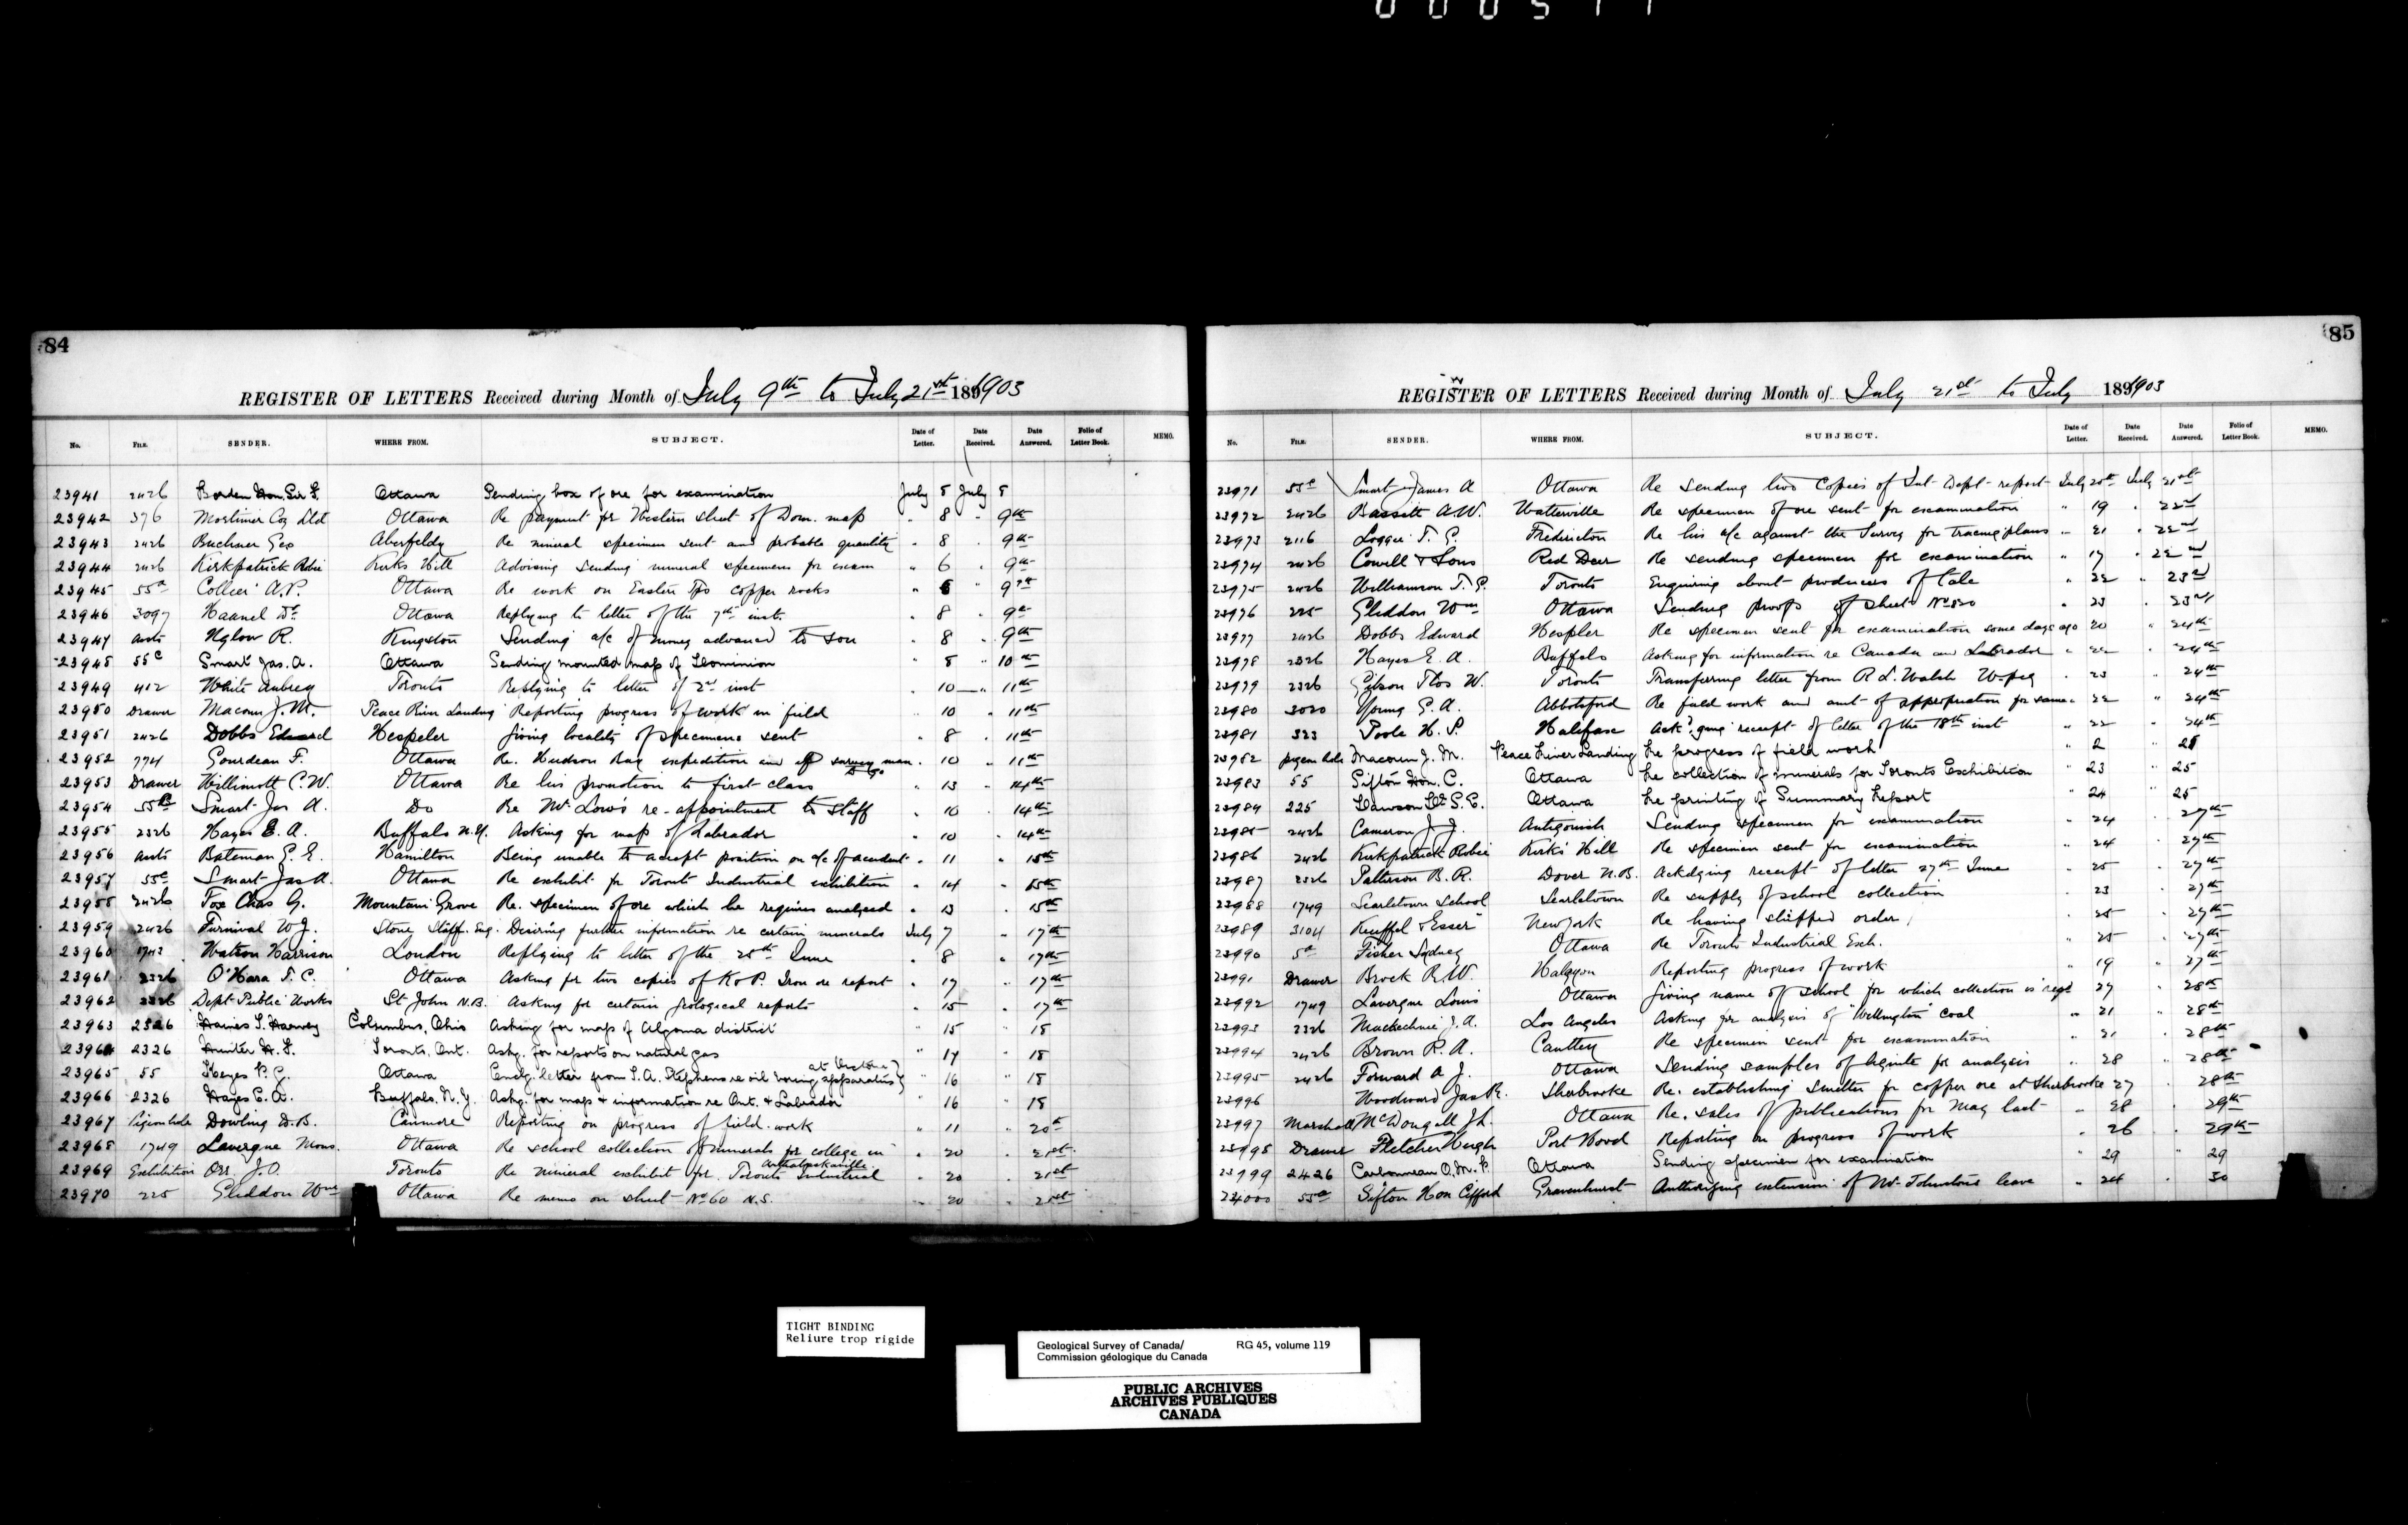 84
REGISTER OF LETTERS Received during Month of July 9th to July 21st 1903
No. FILE. SENDER. WHERE FROM. SUBJECT. Date of Letter. Date Received. Date Answered. Folio of Letter Book. MEMO.
23941 2426 Borden Hon. Sir F. Ottawa Sending box of ore for examination July 8 July 8
23942 376 Mortimer Coy Ltd Ottawa Re payment for Western sheet of Dom. map " 8 " 9th
23943 2426 Buchner Geo Aberfeldy Re mineral specimen sent and probable quantity " 8 " 9th
23944 2426 Kirkpatrick Robie Kirks Hill Advising sending mineral specimens for exam " 6 " 9th
23945 55a Collier A.P. Ottawa Re work on Eastern Tps copper rocks " 8 " 9th
23946 3097 Haanel Dr Ottawa Replying to letter of the 7th inst. " 8 " 9th
23947 accts Uglow R. Kingston Sending a/c of money advanced to son " 8 " 9th
23948 55c Smart Jas. A. Ottawa Sending mounted map of Dominion " 8 " 10th
23949 412 White Aubrey Toronto Replying to letter of 2nd inst " 10 " 11th
23950 Drawer Macoun J.M. Peace River Landing Reporting progress of work in field " 10 " 11th
23951 2426 Dobbs Edward Hespeler Giving locality of specimens sent " 8 " 11th
23952 774 Gourdeau F. Ottawa Re. Hudson Bay expedition and survey man to go " 10 " 11th
23953 Drawer Willimott C.W. Ottawa Re his promotion to first class " 13 " 14th
23954 55c Smart Jas A. Do Re Mr Low's re-appointment to staff " 10 " 14th
23955 2326 Hayes E. A. Buffalo N.Y. Asking for map of Labrador " 10 " 14th
23956 accts Bateman G. E. Hamilton Being unable to accept position on a/c of accident " 11 " 15th
23957 55c Smart Jas A. Ottawa Re exhibit for Toronto Industrial exhibition " 14 " 15th
23958 2426 Fox Chas G. Mountain Grove Re. specimen of ore which he requires analysed " 13 " 15th
23959 2426 Furnival W J. Stone, Staff. Eng. Desiring further information re certain minerals July 7 " 17th
23960 1743 Watson Harrison London Replying to letter of the 25th June " 8 " 17th
23961 2326 O'Hara F. C. Ottawa Asking for two copies of K & P. Iron ore report " 17 " 17th
23962 2326 Dept Public Works St John N.B. Asking for certain geological reports " 15 " 17th
23963 2326 Haines T. Harvey Columbus, Ohio Asking for map of Algoma district " 15 " 18
23964 2326 Hunter H. F. Toronto, Ont. Askg. for reports on natural gas " 17 " 18
23965 55 Keyes P. G. Ottawa Enclg. letter from S. A. Stephens re oil boring apparatus " 16 " 18
23966 2326 Hayes E. A. Buffalo, N.Y. Askg. for map & information re Ont. & Labrador " 16 " 18
23967 Pigeon hole Dowling D.B. Canmore Reporting on progress of field-work " 11 " 20th
23968 1749 Lavergne Mons. Ottawa Re school collection of minerals for college in Arthabaskaville " 20 " 21st
23969 Exhibition Orr. J.O. Toronto Re mineral exhibit for Toronto Industrial " 20 " 21st
23970 225 Gliddon Wm Ottawa Re memo on sheet No 60 N.S. " 20 " 21st
85
REGISTER OF LETTERS Received during Month of July 21st to July 1903
No. FILE. SENDER. WHERE FROM. SUBJECT. Date of Letter. Date Received. Date Answered. Folio of Letter Book. MEMO.
23971 55c Smart James A Ottawa Re sending two copies of Int Dept report July 20th July 21st
23972 2426 Bassett A.W. Waterville Re specimen of ore sent for examination " 19 " 22nd
23973 2116 Loggie T. G. Fredericton Re his a/c against the Survey for tracing plans " 21 " 22nd
23974 2426 Cowell & Sons Red Deer Re sending specimen for examination " 17 " 22nd
23975 2426 Williamson T. G. Toronto Enquiring about producers of talc " 22 " 23rd
23976 225 Gliddon Wm Ottawa Sending proofs of sheet No 820 " 23 " 23rd
23977 2426 Dobbs Edward Hespler Re specimen sent for examination some days ago 20 " 24th
23978 2326 Hayes E. A. Buffalo Asking for information re Canada and Labrador " 22 " 24th
23979 2326 Gibson Thos W. Toronto Transferring letter from R. L. Walsh Wpeg " 23 " 24th
23980 3020 Young G. A. Abbotsford Re field work and amt of appropriation for same " 22 " 24th
23981 323 Poole H. S. Halifax Ack'g'ing receipt of letter of the 18th inst " 22 " 24th
23982 pigeon hole Macoun J. M. Peace River Landing Re progress of field work " 2 " 25
23983 55 Sifton Hon. C. Ottawa Re collection of minerals for Toronto Exhibition " 23 " 25
23984 225 Dawson Dr S. E. Ottawa Re printing of Summary Report " 24 " 25
23985 2426 Cameron J J. Antigonish Sending specimen for examination " 24 " 27th
23986 2426 Kirkpatrick Robie Kirks Hill Re specimen sent for examination " 24 " 27th
23987 2326 Patterson B. R. Dover N.B. Ackdging receipt of letter 27th June " 25 " 27th
23988 1749 Scarletown School Scarletown Re supply of school collection " 23 " 27th
23989 3104 Keuffel & Esser New York Re having shipped order " 25 " 27th
23990 5a Fisher Sydney Ottawa Re Toronto Industrial Exh. " 25 " 27th
23991 Drawer Brock R.W. Halcyon Reporting progress of work " 19 " 27th
23992 1749 Lavergne Louis Ottawa Giving name of school for which collection is reqd 27 " 28th
23993 2326 Mackechnie J. A. Los Angeles Asking for analysis of Wellington coal " 21 " 28th
23994 2426 Brown R. A. Cantley Re specimen sent for examination " 21 " 28th
23995 2426 Forward A J. Ottawa Sending samples of lignite for analysis " 28 " 28th
23996 Woodward Jas R. Sherbrooke Re. establishing smelter for copper ore at Sherbrooke 27 " 28th
23997 Marshall McDougall J.L. Ottawa Re. sales of publications for May last " 28 " 29th
23998 Drawer Fletcher Hugh Port Hood Reporting on progress of work " 26 " 29th
23999 2426 Carbonneau O. M. P. Ottawa Sending specimen for examination " 29 " 29
24000 55a Sifton Hon Clifford Gravenhurst Authorizing extension of Mr Johnston's leave " 24 " 30
TIGHT BINDING
Reliure trop rigide
Geological Survey of Canada/ RG 45, volume 119
Commission géologique du Canada
PUBLIC ARCHIVES
ARCHIVES PUBLIQUES
CANADA